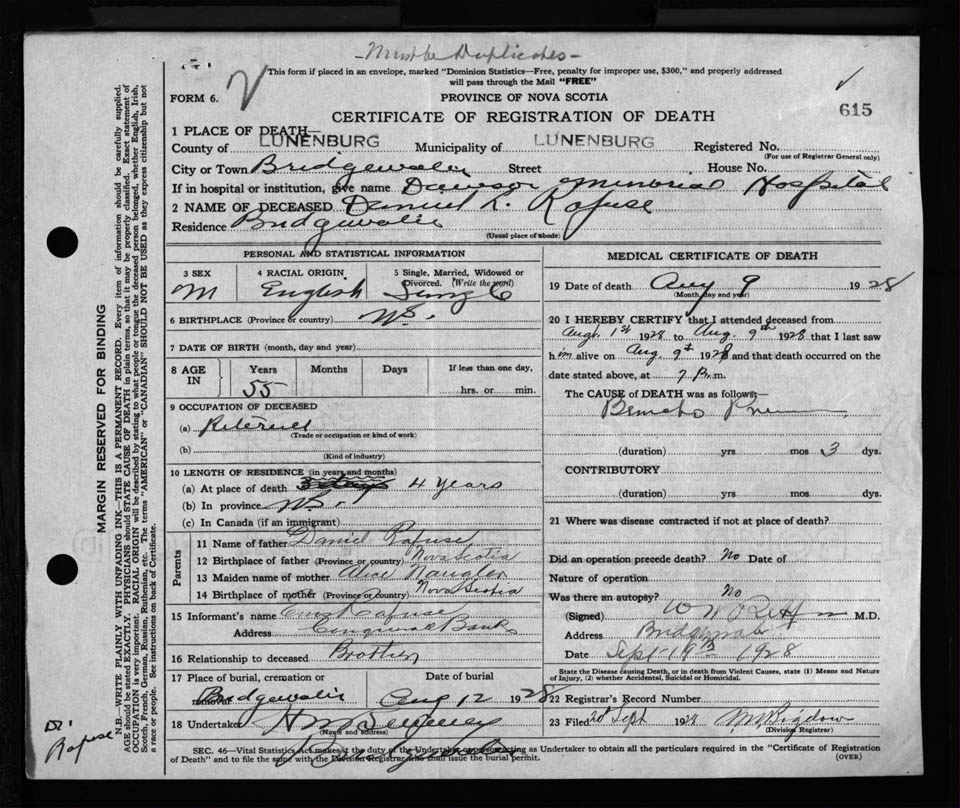 Must be Duplicates
This form if placed in an envelope, marked "Dominion Statistics—Free, penalty for improper use, $300," and properly addressed
will pass through the Mail "FREE"
FORM 6.
PROVINCE OF NOVA SCOTIA
615
CERTIFICATE OF REGISTRATION OF DEATH
1 PLACE OF DEATH—
County of LUNENBURG Municipality of LUNENBURG Registered No.
(For use of Registrar General only)
City or Town Bridgewater Street House No.
If in hospital or institution, give name Dawson Memorial Hospital
2 NAME OF DECEASED Daniel L. Rafuse
Residence Bridgewater
(Usual place of abode)
PERSONAL AND STATISTICAL INFORMATION
3 SEX M
4 RACIAL ORIGIN English
5 Single, Married, Widowed or Divorced. (Write the word) Single
6 BIRTHPLACE (Province or country) N.S.
7 DATE OF BIRTH (month, day and year)
8 AGE IN Years Months Days If less than one day,
55 hrs. or min.
9 OCCUPATION OF DECEASED
(a) Retired
(Trade or occupation or kind of work)
(b)
(Kind of industry)
10 LENGTH OF RESIDENCE (in years and months)
(a) At place of death 3 days 4 years
(b) In province N.S.
(c) In Canada (if an immigrant)
Parents
11 Name of father Daniel Rafuse
12 Birthplace of father (Province or country) Nova Scotia
13 Maiden name of mother Alice Naugler
14 Birthplace of mother (Province or country) Nova Scotia
15 Informant's name Rafuse
Address Conquerall Bank
16 Relationship to deceased Brother
17 Place of burial, cremation or removal Date of burial
Bridgewater Aug 12 1928
18 Undertaker
(Name and address)
MEDICAL CERTIFICATE OF DEATH
19 Date of death Aug 9 1928
(Month, day and year)
20 I HEREBY CERTIFY that I attended deceased from
Aug. 1st 1928 to Aug. 9th 1928 that I last saw
him alive on Aug. 9th 1928 and that death occurred on the
date stated above, at 7 P.m.
The CAUSE OF DEATH was as follows:
Broncho Pneum
(duration) yrs mos 3 dys.
CONTRIBUTORY
(duration) yrs mos dys.
21 Where was disease contracted if not at place of death?
Did an operation precede death? No Date of
Nature of operation
Was there an autopsy? No
(Signed) M.D.
Address Bridgewater
Date Sept 19th 1928
State the Disease causing Death, or in death from Violent Causes, state (1) Means and Nature
of Injury, (2) whether Accidental, Suicidal or Homicidal.
22 Registrar's Record Number
23 Filed 20 Sept 1928
(Division Registrar)
SEC. 46—Vital Statistics Act makes it the duty of the Undertaker or person acting as Undertaker to obtain all the particulars required in the "Certificate of Registration
of Death" and to file the same with the Division Registrar who shall issue the burial permit. (OVER)
MARGIN RESERVED FOR BINDING
N.B.—WRITE PLAINLY WITH UNFADING INK—THIS IS A PERMANENT RECORD. Every item of information should be carefully supplied.
AGE should be stated EXACTLY. PHYSICIANS should STATE CAUSE OF DEATH in plain terms, so that it may be properly classified. Exact statement of
OCCUPATION is very important. RACIAL ORIGIN will be described by stating to what people or tongue the deceased person belonged, whether English, Irish,
Scotch, French, German, Russian, Ruthenian, etc. The terms "AMERICAN" or "CANADIAN" SHOULD NOT BE USED as they express citizenship but not
a race or people. See instructions on back of Certificate.
Rafuse